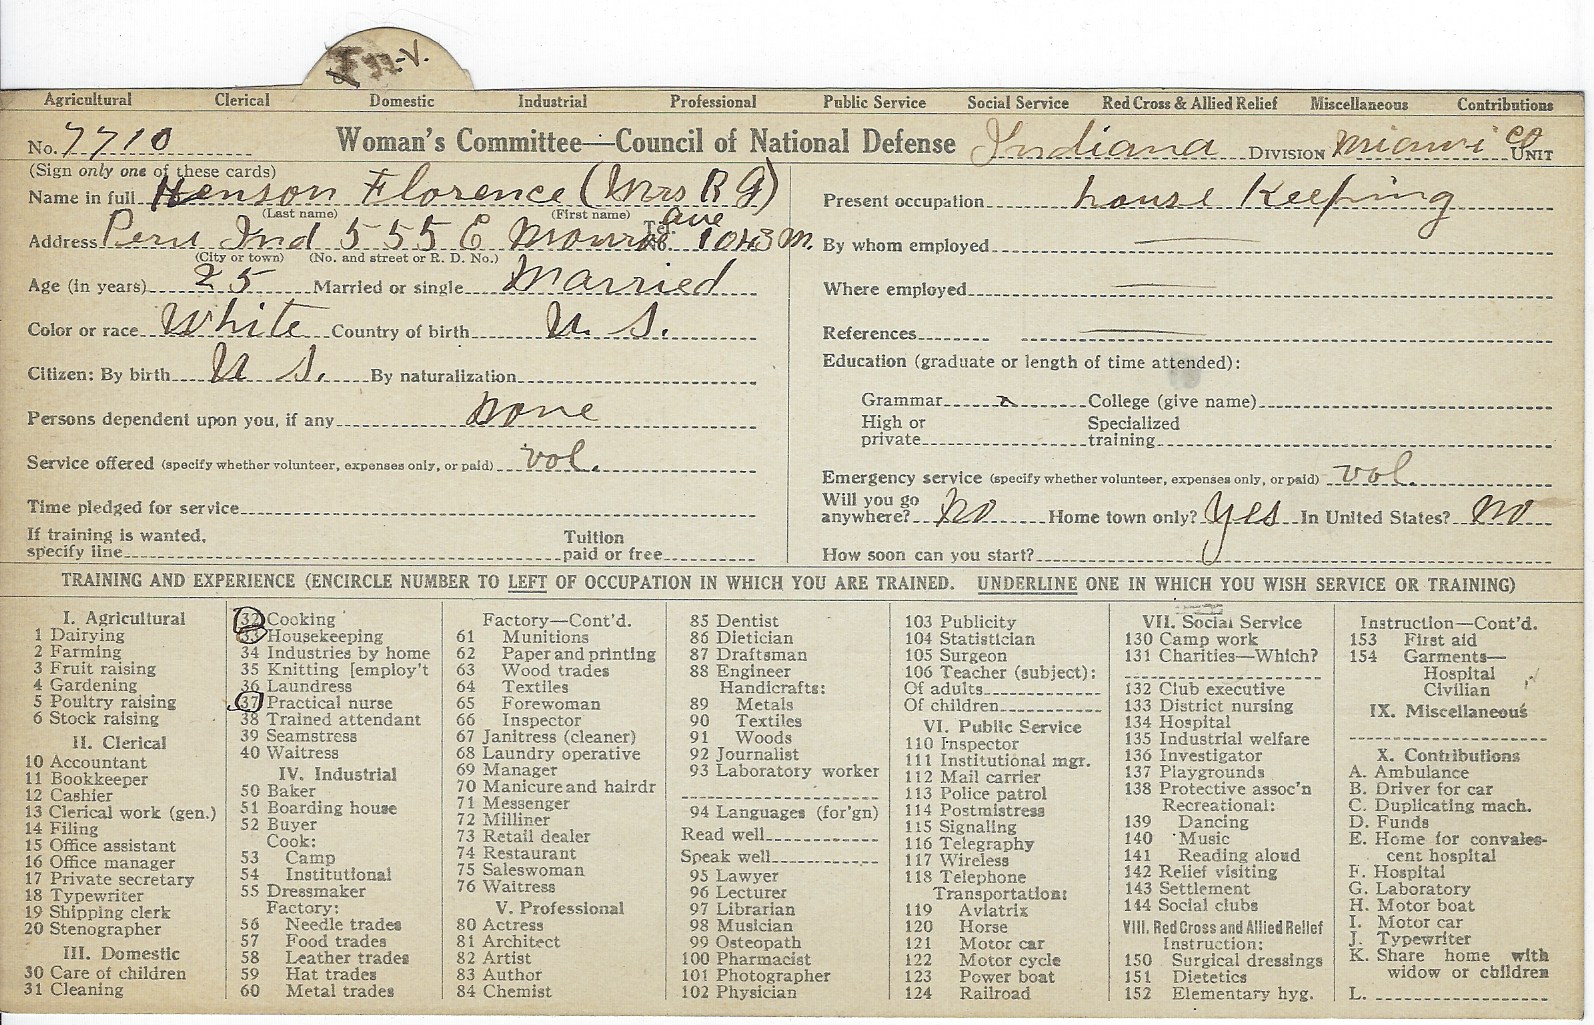 32-V.
Agricultural Clerical Domestic Industrial Professional Public Service Social Service Red Cross & Allied Relief Miscellaneous Contributions
No. 7710 Woman's Committee—Council of National Defense Indiana DIVISION Miami Co UNIT
(Sign only one of these cards)
Name in full Henson Florence (Mrs R G)
(Last name) (First name)
Address Peru Ind 555 E Monroe ave Tel. No. 1043 M.
(City or town) (No. and street or R. D. No.)
Age (in years) 25 Married or single Married
Color or race White Country of birth U. S.
Citizen: By birth U S. By naturalization
Persons dependent upon you, if any none
Service offered (specify whether volunteer, expenses only, or paid) vol.
Time pledged for service
If training is wanted, specify line Tuition paid or free
Present occupation house Keeping
By whom employed
Where employed
References
Education (graduate or length of time attended):
Grammar x College (give name)
High or private Specialized training
Emergency service (specify whether volunteer, expenses only, or paid) vol.
Will you go anywhere? No Home town only? Yes In United States? No
How soon can you start?
TRAINING AND EXPERIENCE (ENCIRCLE NUMBER TO LEFT OF OCCUPATION IN WHICH YOU ARE TRAINED. UNDERLINE ONE IN WHICH YOU WISH SERVICE OR TRAINING)
I. Agricultural
1 Dairying
2 Farming
3 Fruit raising
4 Gardening
5 Poultry raising
6 Stock raising
II. Clerical
10 Accountant
11 Bookkeeper
12 Cashier
13 Clerical work (gen.)
14 Filing
15 Office assistant
16 Office manager
17 Private secretary
18 Typewriter
19 Shipping clerk
20 Stenographer
III. Domestic
30 Care of children
31 Cleaning
32 Cooking
33 Housekeeping
34 Industries by home
35 Knitting [employ't
36 Laundress
37 Practical nurse
38 Trained attendant
39 Seamstress
40 Waitress
IV. Industrial
50 Baker
51 Boarding house
52 Buyer
Cook:
53 Camp
54 Institutional
55 Dressmaker
Factory:
56 Needle trades
57 Food trades
58 Leather trades
59 Hat trades
60 Metal trades
Factory—Cont'd.
61 Munitions
62 Paper and printing
63 Wood trades
64 Textiles
65 Forewoman
66 Inspector
67 Janitress (cleaner)
68 Laundry operative
69 Manager
70 Manicure and hairdr
71 Messenger
72 Milliner
73 Retail dealer
74 Restaurant
75 Saleswoman
76 Waitress
V. Professional
80 Actress
81 Architect
82 Artist
83 Author
84 Chemist
85 Dentist
86 Dietician
87 Draftsman
88 Engineer
Handicrafts:
89 Metals
90 Textiles
91 Woods
92 Journalist
93 Laboratory worker
94 Languages (for'gn)
Read well
Speak well
95 Lawyer
96 Lecturer
97 Librarian
98 Musician
99 Osteopath
100 Pharmacist
101 Photographer
102 Physician
103 Publicity
104 Statistician
105 Surgeon
106 Teacher (subject):
Of adults
Of children
VI. Public Service
110 Inspector
111 Institutional mgr.
112 Mail carrier
113 Police patrol
114 Postmistress
115 Signaling
116 Telegraphy
117 Wireless
118 Telephone
Transportation:
119 Aviatrix
120 Horse
121 Motor car
122 Motor cycle
123 Power boat
124 Railroad
VII. Social Service
130 Camp work
131 Charities—Which?
132 Club executive
133 District nursing
134 Hospital
135 Industrial welfare
136 Investigator
137 Playgrounds
138 Protective assoc'n
Recreational:
139 Dancing
140 Music
141 Reading aloud
142 Relief visiting
143 Settlement
144 Social clubs
VIII. Red Cross and Allied Relief
Instruction:
150 Surgical dressings
151 Dietetics
152 Elementary hyg.
Instruction—Cont'd.
153 First aid
154 Garments—
Hospital
Civilian
IX. Miscellaneous
X. Contributions
A. Ambulance
B. Driver for car
C. Duplicating mach.
D. Funds
E. Home for convales-
cent hospital
F. Hospital
G. Laboratory
H. Motor boat
I. Motor car
J. Typewriter
K. Share home with
widow or children
L.